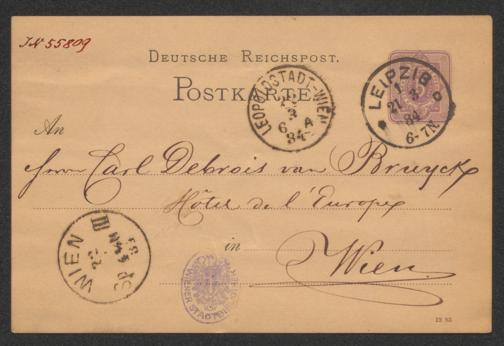 JN 55809
DEUTSCHE REICHSPOST.
POSTKARTE
LEOPOLDSTADT-WIEN
3
6 A
84
LEIPZIG
1
21 3
84
6-7N.
An
Herrn Carl Debrois van Bruyck
Hôtel de l'Europe
in
Wien
WIEN
III
WIENER STADT
12 83